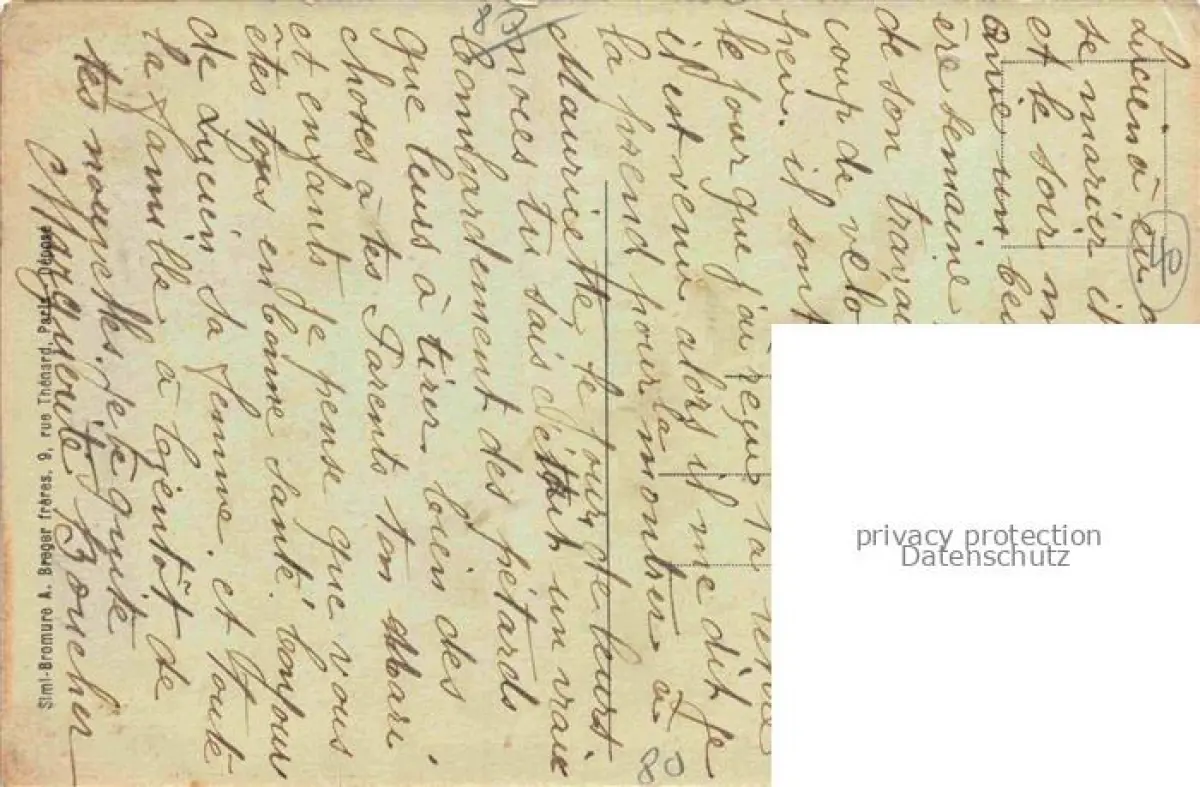 Lucien à eu
se marier il
et le soir
amie un
ère semaine
de son
coup de vélo
peu. il sont
le jour que j'ai reçue ta
il est venu alors il me dit je
la prend pour la montrer à
Mauricette, le jour de leurs
noces tu sais c'était un vraie
Bombardement des pétards
que leurs à tirer. biens des
choses à tes Parents ton Mari
et enfants je pense que vous
êtes tous en bonne santé, bonjour
de Lucien sa femme. et toute
la famille à bientôt de
tes nouvelles. je te quitte
Marguerite Boucher
Simi-Bromure A. Breger frères. 9, rue Thénard, Paris. Déposé
8
80
privacy protection
Datenschutz